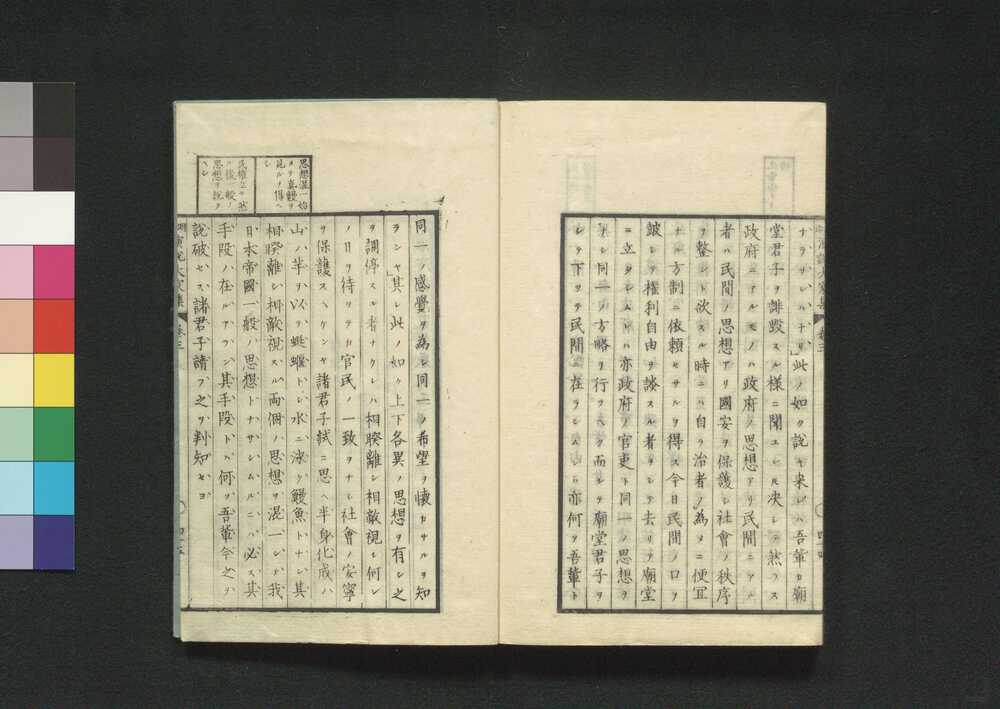 ナラサレハナリ」此ノ如ク說キ來レハ吾輩カ廟
堂君子ヲ誹毀スル樣ニ聞ユレ𪜈决シテ然ラス
政府ニアルモノハ政府ノ思想アリ民間ニアル
者ハ民間ノ思想アリ國安ヲ保護シ社會ノ秩序
ヲ整ント欲スル時ニハ自ラ治者ノ為メニ便宜
ナル方制ニ依賴セサルヲ得ス今日民間ノ口ヲ
皷シテ權利自由ヲ談スル者ヲシテ去リテ廟堂
ニ立タシムレハ亦政府ノ官吏ト同一ノ思想ヲ
起シ同一ノ方略ヲ行フヘク而シテ廟堂君子ヲ
シテ下ツテ民間ニ在ラシムレハ亦何ソ吾輩ト
同一ノ感覺ヲ為シ同一ノ希望ヲ懷カサルヲ知
ランヤ」其レ此ノ如ク上下各異ノ思想ヲ有シ之
ヲ調停スル者ナクシハ相睽離シ相敵視シ何レ
ノ日ヲ待ツテカ官民ノ一致ヲナシ社會ノ安寧
ヲ保護スヘケンヤ諸君子試ニ思ヘ半身化成ハ
山ハ芋ヲ以テ蜒蝘トシ水ニ泳ク鰻魚トナシ其
相睽離シ相敵視スル両個ノ思想ヲ混一シテ我
日本帝國一般ノ思想トナサシムルニハ必ス其
手段ハ在ルアラン其手段トハ何ソ吾輩今之ヲ
說破セス諸君子請フ之ヲ判知セヨ
思想混一始
メテ真鰻ヲ
見ルヲ得ヘ
シ
民權立ツ然
ル後一般ノ
思想ヲ說ク
ヘシ
卷三
四十五